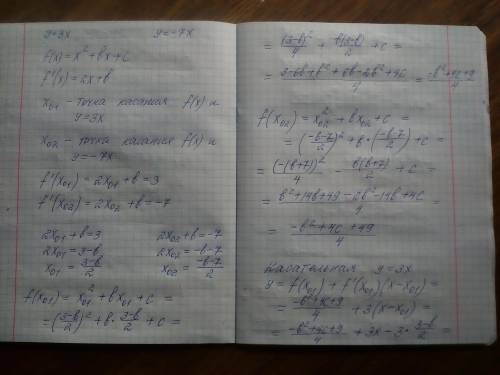 y=3x y=-7x
f(x)=x²+bx+c
f'(x)=2x+b
x₀₁ - точка касания f(x) и
y=3x
x₀₂ - точка касания f(x) и
y=-7x
f'(x₀₁)=2x₀₁+b=3
f'(x₀₂)=2x₀₂+b=-7
2x₀₁+b=3 2x₀₂+b=-7
2x₀₁=3-b 2x₀₂=-b-7
x₀₁=(3-b)/2 x₀₂=(-b-7)/2
f(x₀₁)=x₀₁²+bx₀₁+c=
=((3-b)/2)²+b·(3-b)/2+c=
=(3-b)²/4+b(3-b)/2+c=
=(3-6b+b²+6b-2b²+4c)/4=(-b²+4c+9)/4
f(x₀₂)=x₀₂²+bx₀₂+c=
=((-b-7)/2)²+b·((-b-7)/2)+c=
=(-(b+7))²/4-b(b+7)/2+c=
=(b²+14b+49-2b²-14b+4c)/4=
=(-b²+4c+49)/4
Касательная y=3x
y=f(x₀₁)+f'(x₀₁)(x-x₀₁)=
=(-b²+4c+9)/4+3(x-x₀₁)=
=(-b²+4c+9)/4+3x-3·(3-b)/2=